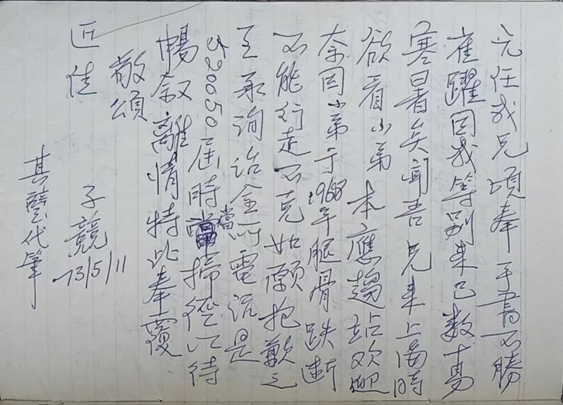 元任我兄頃奉手書不勝
雀躍因我等别来已数十易
寒暑矣闻吾兄来上海時
欲看小弟本應趨站欢迎
奈因小弟于1968年腿骨跌断
不能行走不克如願抱歉之
至承询治金所電话是
420050届時當掃徑以待
當
暢叙離情特此奉覆
敬頌
近佳
子競
73/5/11
其瑩代筆